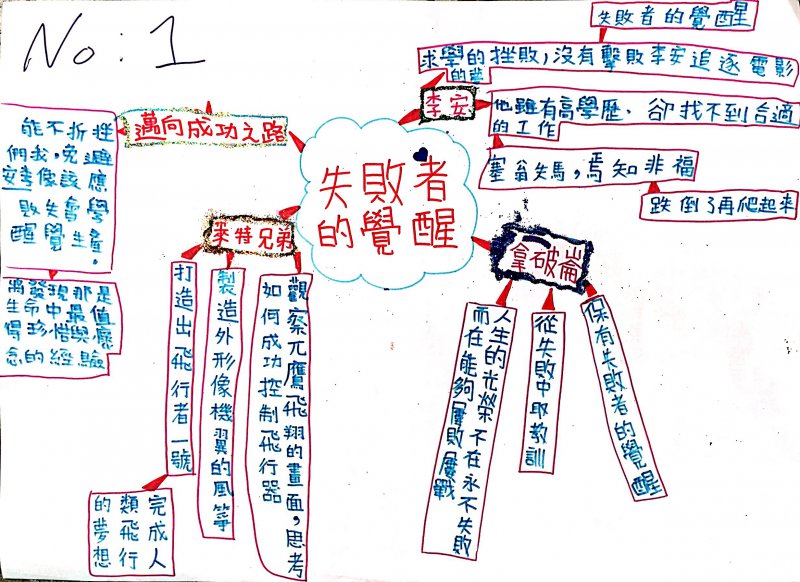 No:1
失敗者
的覺醒
失敗者的覺醒
求學的挫敗,沒有擊敗李安追逐電影
的夢
李安
他雖有高學歷,卻找不到合適
的工作
塞翁失馬,焉知非福
跌倒了再爬起來
拿破崙
保有失敗者的覺醒
從失敗中取教訓
人生的光榮不在永不失敗
而在能夠屢敗屢戰
麥特兄弟
觀察兀鷹飛翔的畫面,思考
如何成功控制飛行器
製造外形像機翼的風箏
打造出飛行者一號
完成人
類飛行
的夢想
邁向成功之路
挫折不能
避免,我們
應該像李安
學會失敗
產生覺醒。
將發現那是
生命中最值
得珍惜與懷
念的經驗